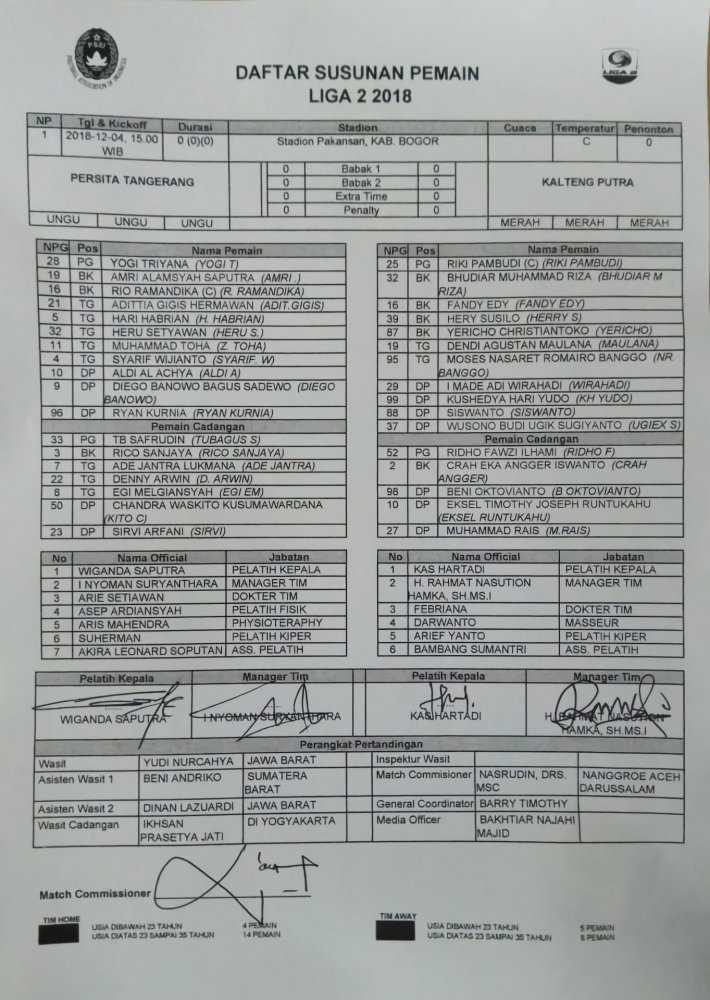 PSSI
LIGA 2
DAFTAR SUSUNAN PEMAIN
LIGA 2 2018
NP Tgl & Kickoff Durasi Stadion Cuaca Temperatur Penonton
1 2018-12-04, 15.00 WIB 0 (0)(0) Stadion Pakansari, KAB. BOGOR C 0
PERSITA TANGERANG
0 Babak 1 0
0 Babak 2 0
0 Extra Time 0
0 Penalty 0
KALTENG PUTRA
UNGU UNGU UNGU
MERAH MERAH MERAH
NPG Pos Nama Pemain
28 PG YOGI TRIYANA (YOGI T)
19 BK AMRI ALAMSYAH SAPUTRA (AMRI .)
16 BK RIO RAMANDIKA (C) (R. RAMANDIKA)
21 TG ADITTIA GIGIS HERMAWAN (ADIT.GIGIS)
5 TG HARI HABRIAN (H. HABRIAN)
32 TG HERU SETYAWAN (HERU S.)
11 TG MUHAMMAD TOHA (Z. TOHA)
4 TG SYARIF WIJIANTO (SYARIF. W)
10 DP ALDI AL ACHYA (ALDI A)
9 DP DIEGO BANOWO BAGUS SADEWO (DIEGO
BANOWO)
96 DP RYAN KURNIA (RYAN KURNIA)
Pemain Cadangan
33 PG TB SAFRUDIN (TUBAGUS S)
3 BK RICO SANJAYA (RICO SANJAYA)
7 TG ADE JANTRA LUKMANA (ADE JANTRA)
22 TG DENNY ARWIN (D. ARWIN)
8 TG EGI MELGIANSYAH (EGI EM)
50 DP CHANDRA WASKITO KUSUMAWARDANA
(KITO C)
23 DP SIRVI ARFANI (SIRVI)
NPG Pos Nama Pemain
25 PG RIKI PAMBUDI (C) (RIKI PAMBUDI)
32 BK BHUDIAR MUHAMMAD RIZA (BHUDIAR M
RIZA)
16 BK FANDY EDY (FANDY EDY)
39 BK HERY SUSILO (HERRY S)
87 BK YERICHO CHRISTIANTOKO (YERICHO)
19 TG DENDI AGUSTAN MAULANA (MAULANA)
95 TG MOSES NASARET ROMAIRO BANGGO (NR.
BANGGO)
29 DP I MADE ADI WIRAHADI (WIRAHADI)
99 DP KUSHEDYA HARI YUDO (KH YUDO)
88 DP SISWANTO (SISWANTO)
37 DP WUSONO BUDI UGIK SUGIYANTO (UGIEX S)
Pemain Cadangan
52 PG RIDHO FAWZI ILHAMI (RIDHO F)
2 BK CRAH EKA ANGGER ISWANTO (CRAH
ANGGER)
98 DP BENI OKTOVIANTO (B OKTOVIANTO)
10 DP EKSEL TIMOTHY JOSEPH RUNTUKAHU
(EKSEL RUNTUKAHU)
27 DP MUHAMMAD RAIS (M.RAIS)
No Nama Official Jabatan
1 WIGANDA SAPUTRA PELATIH KEPALA
2 I NYOMAN SURYANTHARA MANAGER TIM
3 ARIE SETIAWAN DOKTER TIM
4 ASEP ARDIANSYAH PELATIH FISIK
5 ARIS MAHENDRA PHYSIOTERAPHY
6 SUHERMAN PELATIH KIPER
7 AKIRA LEONARD SOPUTAN ASS. PELATIH
No Nama Official Jabatan
1 KAS HARTADI PELATIH KEPALA
2 H. RAHMAT NASUTION MANAGER TIM
HAMKA, SH.MS.I
3 FEBRIANA DOKTER TIM
4 DARWANTO MASSEUR
5 ARIEF YANTO PELATIH KIPER
6 BAMBANG SUMANTRI ASS. PELATIH
Pelatih Kepala Manager Tim Pelatih Kepala Manager Tim
WIGANDA SAPUTRA I NYOMAN SURYANTHARA KAS HARTADI H. RAHMAT NASUTION
HAMKA, SH.MS.I
Perangkat Pertandingan
Wasit YUDI NURCAHYA JAWA BARAT Inspektur Wasit
Asisten Wasit 1 BENI ANDRIKO SUMATERA BARAT Match Commisioner NASRUDIN, DRS. MSC NANGGROE ACEH DARUSSALAM
Asisten Wasit 2 DINAN LAZUARDI JAWA BARAT General Coordinator BARRY TIMOTHY
Wasit Cadangan IKHSAN PRASETYA JATI DI YOGYAKARTA Media Officer BAKHTIAR NAJAHI MAJID
Match Commissioner
TIM HOME
USIA DIBAWAH 23 TAHUN 4 PEMAIN
USIA DIATAS 23 SAMPAI 35 TAHUN 14 PEMAIN
TIM AWAY
USIA DIBAWAH 23 TAHUN 5 PEMAIN
USIA DIATAS 23 SAMPAI 35 TAHUN 8 PEMAIN